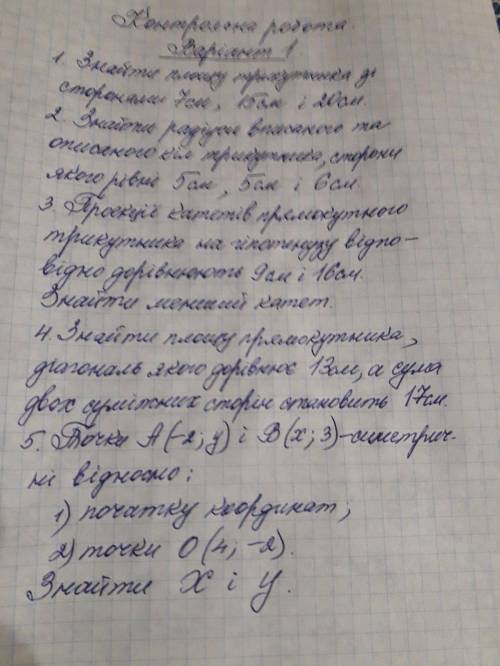 Контрольна робота.
Варіант 1
1. Знайти площу трикутника зі
сторонами 7см, 15см і 20см.
2. Знайти радіуси вписаного та
описаного кіл трикутника, сторони
якого рівні 5см, 5см і 6см.
3. Проекції катетів прямокутного
трикутника на гіпотенузу відпо-
відно дорівнюють 9см і 16см.
Знайти менший катет.
4. Знайти площу прямокутника,
діагональ якого дорівнює 13см, а сума
двох суміжних сторін становить 17см.
5. Точки А(-2; y) і В(x; 3)-симетрич-
ні відносно:
1) початку координат;
2) точки О(4; -2).
Знайти X і У.